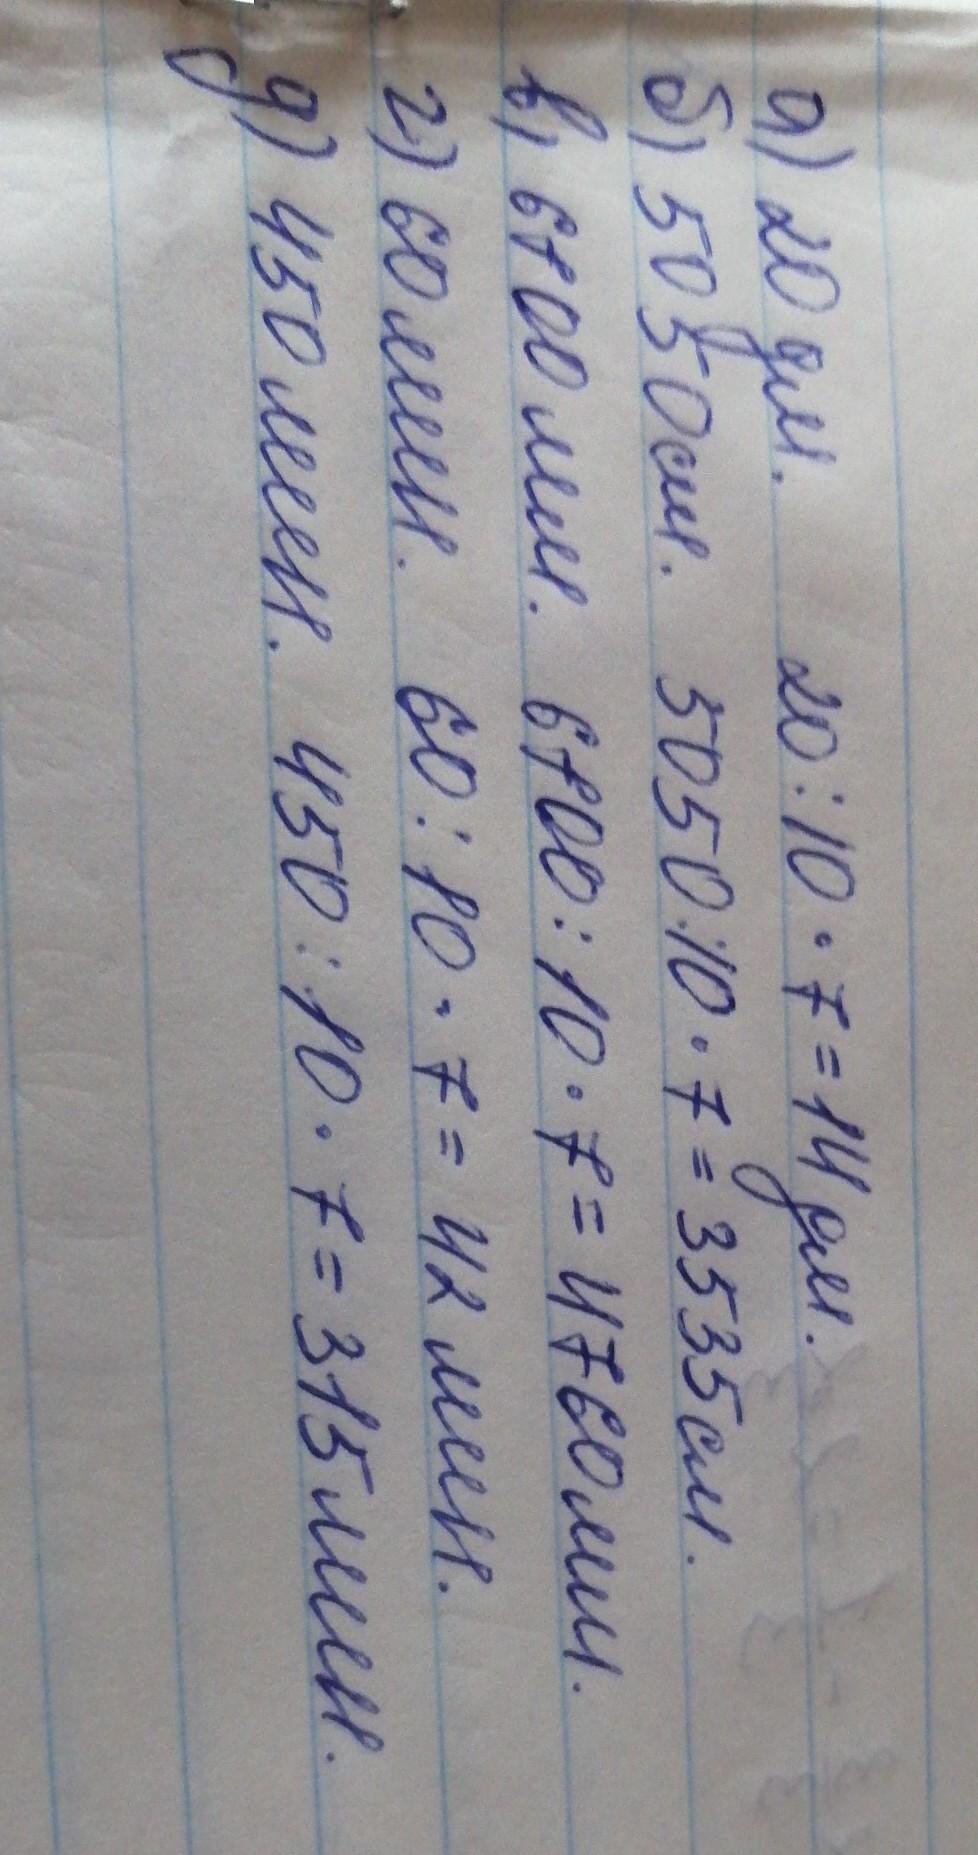 а) 20 дм. 20 : 10 · 7 = 14 дм.
б) 5050 см. 5050 : 10 · 7 = 3535 см.
в) 6700 мм. 6700 : 10 · 7 = 4760 мм.
г) 60 мин. 60 : 10 · 7 = 42 мин.
д) 450 мин. 450 : 10 · 7 = 315 мин.